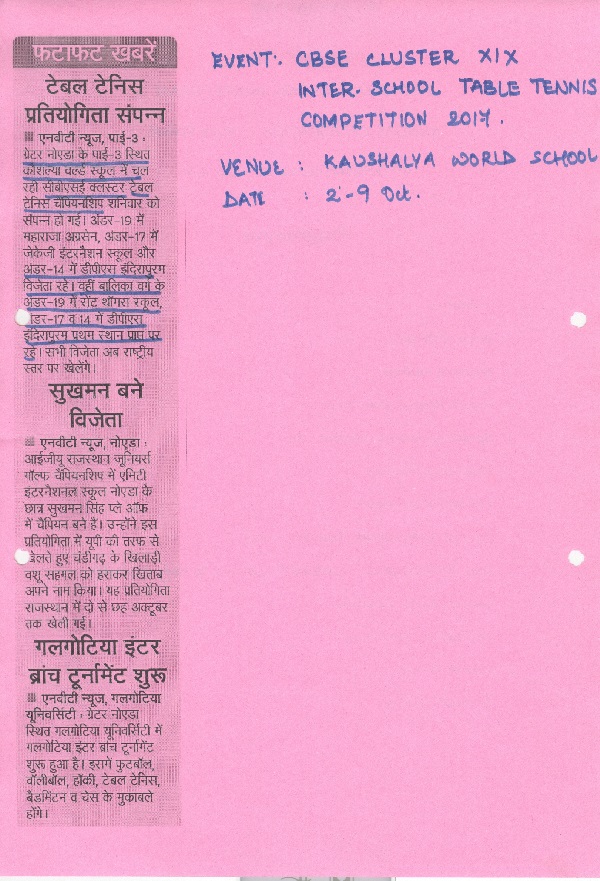 फटाफट खबरें
टेबल टेनिस
प्रतियोगिता संपन्न
एनवीटी न्यूज, पाई-3 :
ग्रेटर नोएडा के पाई-3 स्थित
कौशल्या वर्ल्ड स्कूल में चल
रही सीबीएसई क्लस्टर टेबल
टेनिस चैंपियनशिप शनिवार को
संपन्न हो गई। अंडर-19 में
महाराजा अग्रसेन, अंडर-17 में
जेकेजी इंटरनैशन स्कूल और
अंडर-14 में डीपीएस इंदिरापुरम
विजेता रहे। वहीं बालिका वर्ग के
अंडर-19 में सेंट थॉमस स्कूल,
अंडर-17 व 14 में डीपीएस
इंदिरापुरम प्रथम स्थान प्राप्त पर
रहे। सभी विजेता अब राष्ट्रीय
स्तर पर खेलेंगे।
सुखमन बने
विजेता
एनवीटी न्यूज, नोएडा :
आईजीयू राजस्थान जूनियर्स
गॉल्फ चैंपियनशिप में एमिटी
इंटरनैशनल स्कूल नोएडा के
छात्र सुखमन सिंह प्ले ऑफ
में चैंपियन बने हैं। उन्होंने इस
प्रतियोगिता में यूपी की तरफ से
खेलते हुए चंडीगढ़ के खिलाड़ी
वशू सहगल को हराकर खिताब
अपने नाम किया। यह प्रतियोगिता
राजस्थान में दो से छह अक्टूबर
तक खेली गई।
गलगोटिया इंटर
ब्रांच टूर्नामेंट शुरू
एनवीटी न्यूज, गलगोटिया
यूनिवर्सिटी : ग्रेटर नोएडा
स्थित गलगोटिया यूनिवर्सिटी में
गलगोटिया इंटर ब्रांच टूर्नामेंट
शुरू हुआ है। इसमें फुटबॉल,
वॉलीबॉल, हॉकी, टेबल टेनिस,
बैडमिंटन व चेस के मुकाबले
होंगे।
EVENT:- CBSE CLUSTER XIX
INTER-SCHOOL TABLE TENNIS
COMPETITION 2017.
VENUE : KAUSHALYA WORLD SCHOOL
DATE : 2-9 Oct.